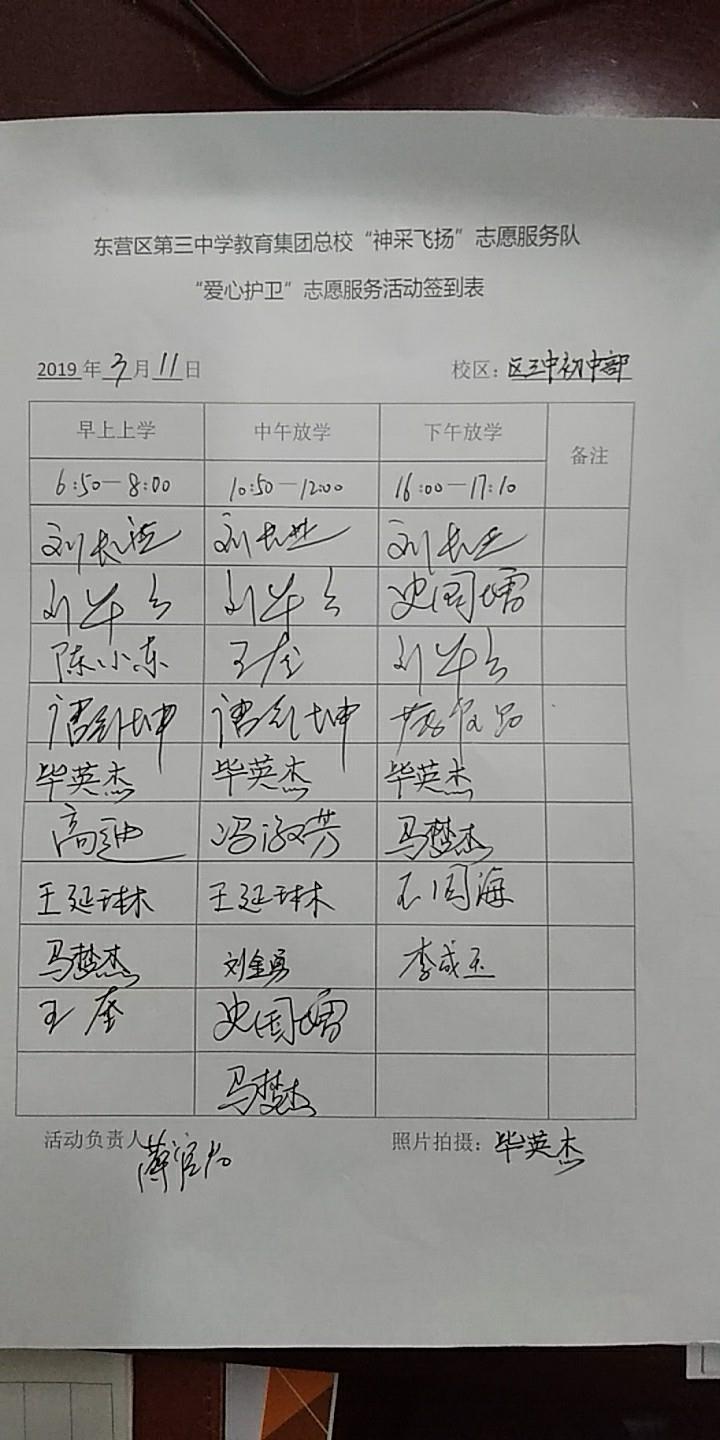 东营区第三中学教育集团总校“神采飞扬”志愿服务队
“爱心护卫”志愿服务活动签到表
2019年3月11日 校区：区三中初中部
早上上学 中午放学 下午放学 备注
6:50—8:00 10:50—12:00 16:00—17:10
刘长 刘长 刘长
刘华 刘华
陈小东 王 刘华
坤 坤
毕英杰 毕英杰 毕英杰
高迪 冯淑芳 马梦杰
王延琳 王延琳 海
马梦杰 刘金勇 李成玉
王奎 史国
马梦杰
活动负责人 照片拍摄：毕英杰